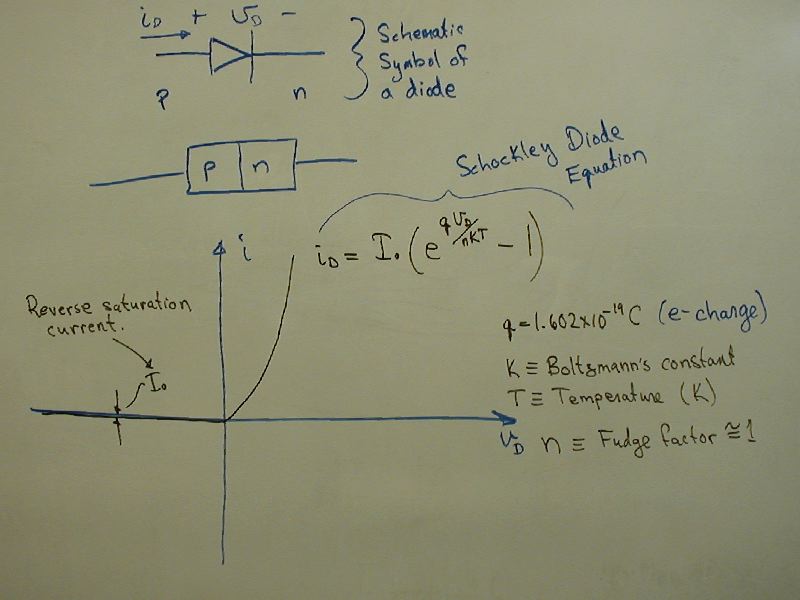 i_D + v_D -
Schematic
Symbol of
a diode
p n
p n
Schockley Diode
Equation
i
i_D = I₀ (e^{qv_D/nKT} - 1)
Reverse saturation
current.
I₀
q = 1.602x10⁻¹⁹ C (e-charge)
K ≡ Boltzmann's constant
T ≡ Temperature (K)
v_D
n ≡ Fudge factor ≅ 1